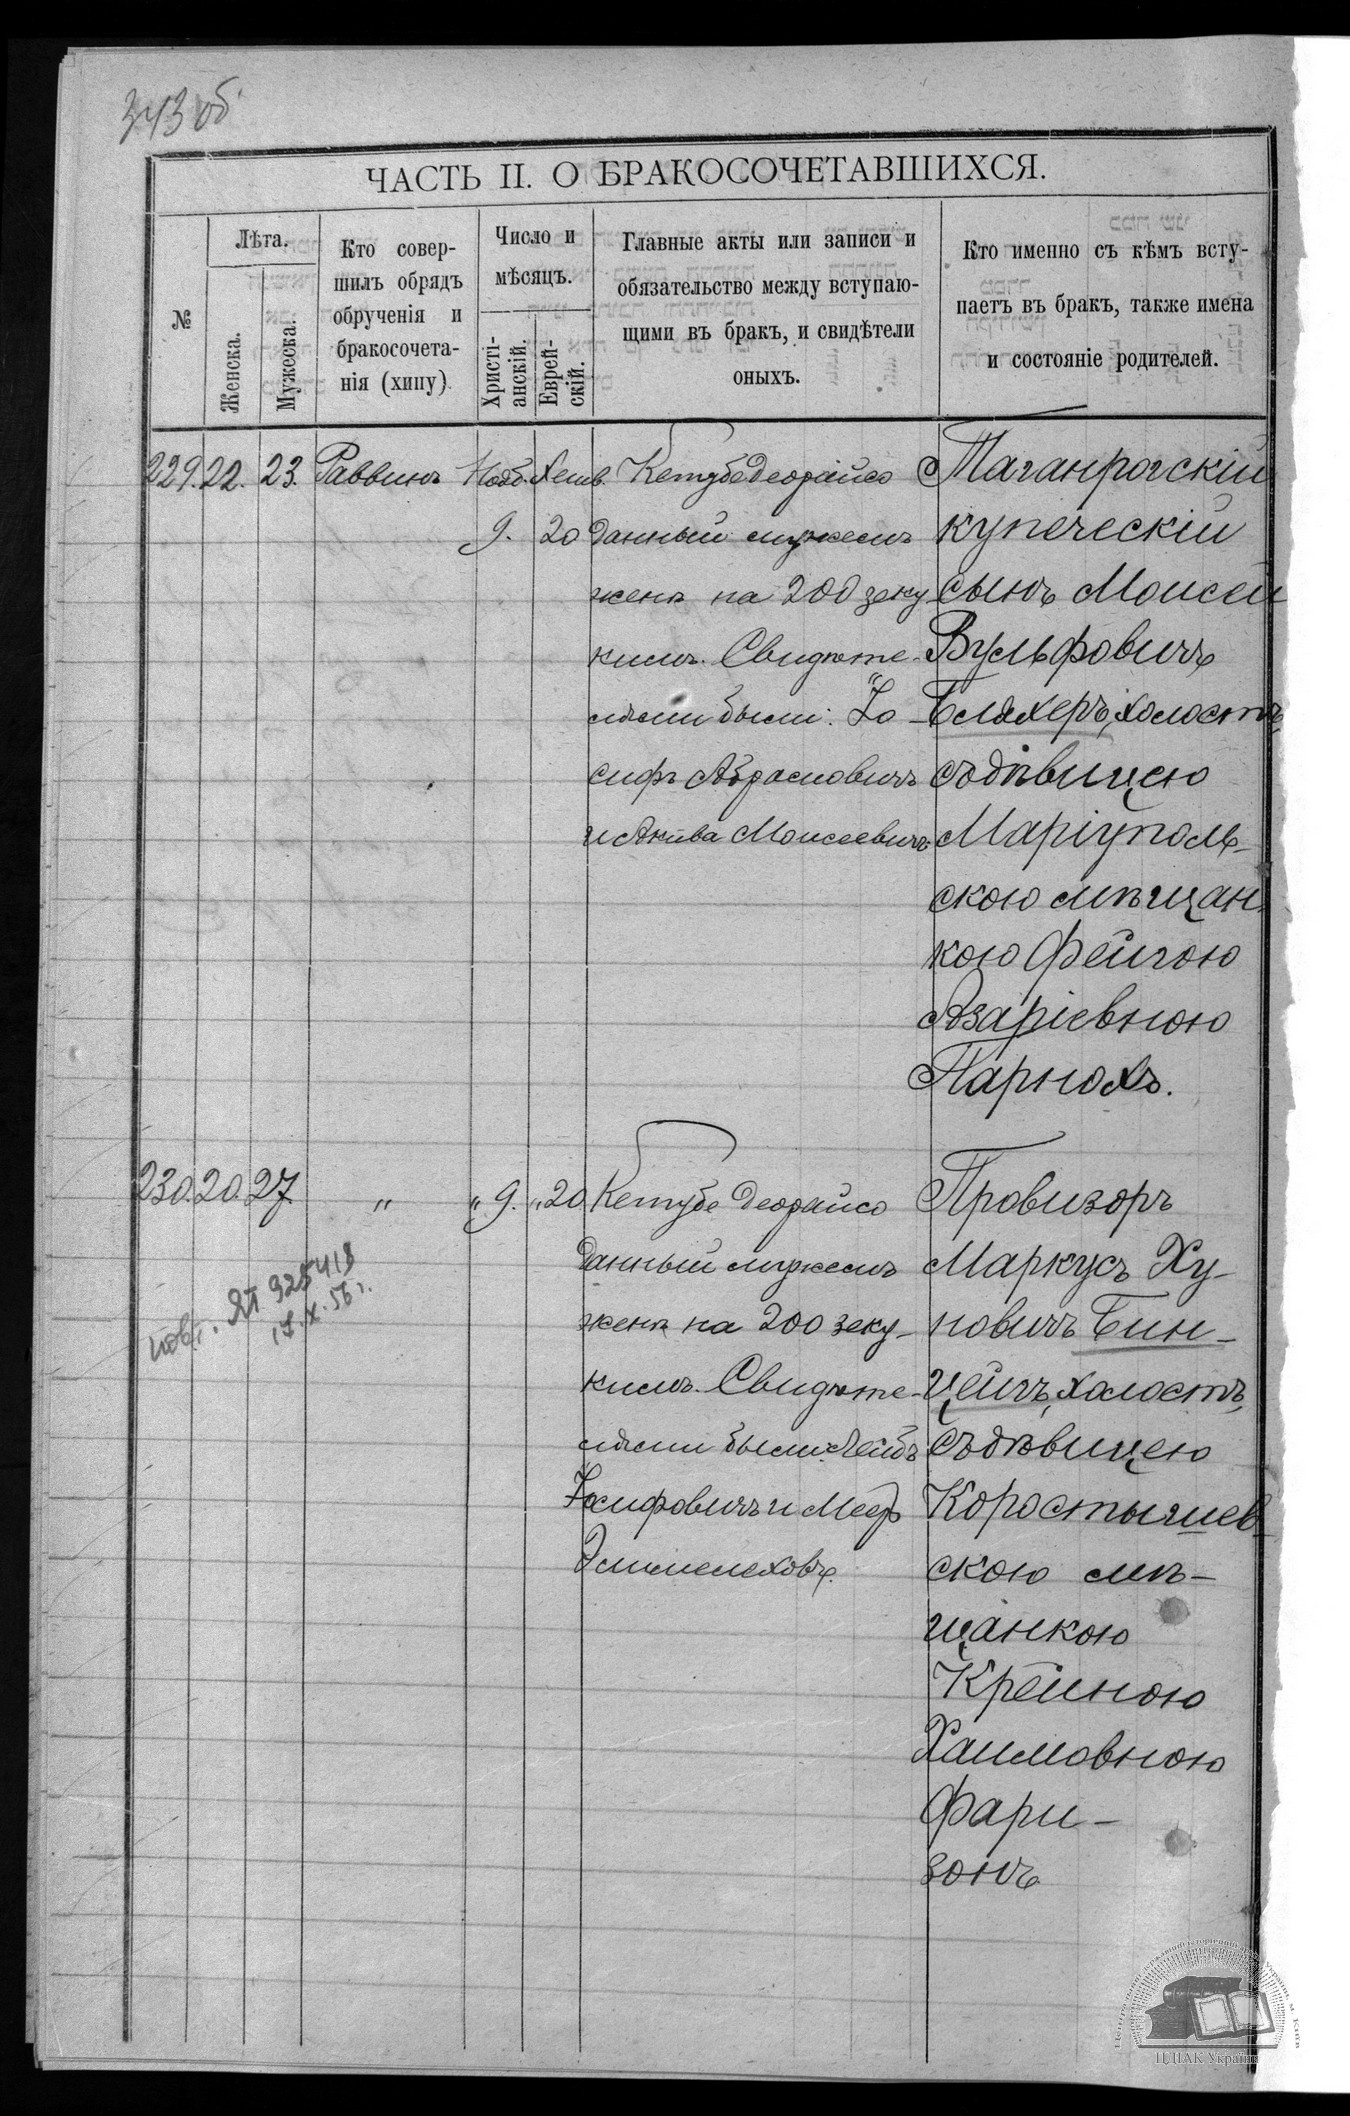 343 об.
ЧАСТЬ II. О БРАКОСОЧЕТАВШИХСЯ.
№
Лѣта.
Женска.
Мужеска.
Кто совер-
шилъ обрядъ
обрученія и
бракосочета-
нія (хипу)
Число и
мѣсяцъ.
Христі-
анскій.
Еврей-
скій.
Главные акты или записи и
обязательство между вступаю-
щими въ бракъ, и свидѣтели
оныхъ.
Кто именно съ кѣмъ всту-
паетъ въ бракъ, также имена
и состояніе родителей.
229. 22. 23. Раввинъ Нояб. Хешв.
9. 20
Кетубе деорайсо
данный мужемъ
женѣ на 200 зеку
кимъ. Свидѣте-
лями были: Іо-
сифъ Абрамовичъ
и Акива Моисеевичъ
Таганрогскій
купеческій
сынъ Моисей
Вульфовичъ
Бляхеръ, холостъ,
съ дѣвицею
Маріуполь-
скою мѣщан-
кою Фейгою
Азаріевною
Парнохъ.
230. 20. 27. " " 9. " 20
Кетубе деорайсо
данный мужемъ
женѣ на 200 зеку-
кимъ. Свидѣте-
лями были: Лейбъ
Іосифовичъ и Меер
Элимелеховъ.
Провизоръ
Маркусъ Ху-
новичъ Бин-
цейгъ, холостъ,
съ дѣвицею
Коростышев-
скою мѣ-
щанкою
Крейною
Хаимовною
Фари-
зонъ
повт. ЯП 925418
17.X.56 г.
ЦДІАК України